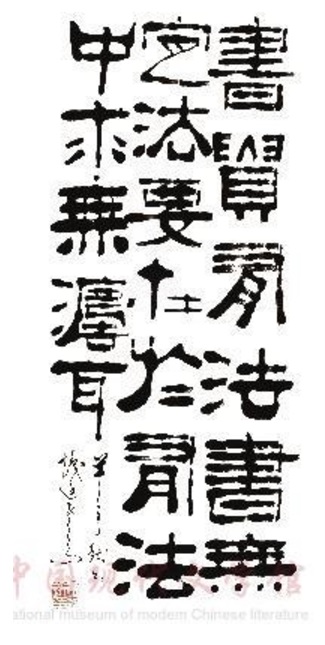 書貴有法書無
定法要在於有法
中求無灋耳
中国现代文学馆
ational museum of modern Chinese literature